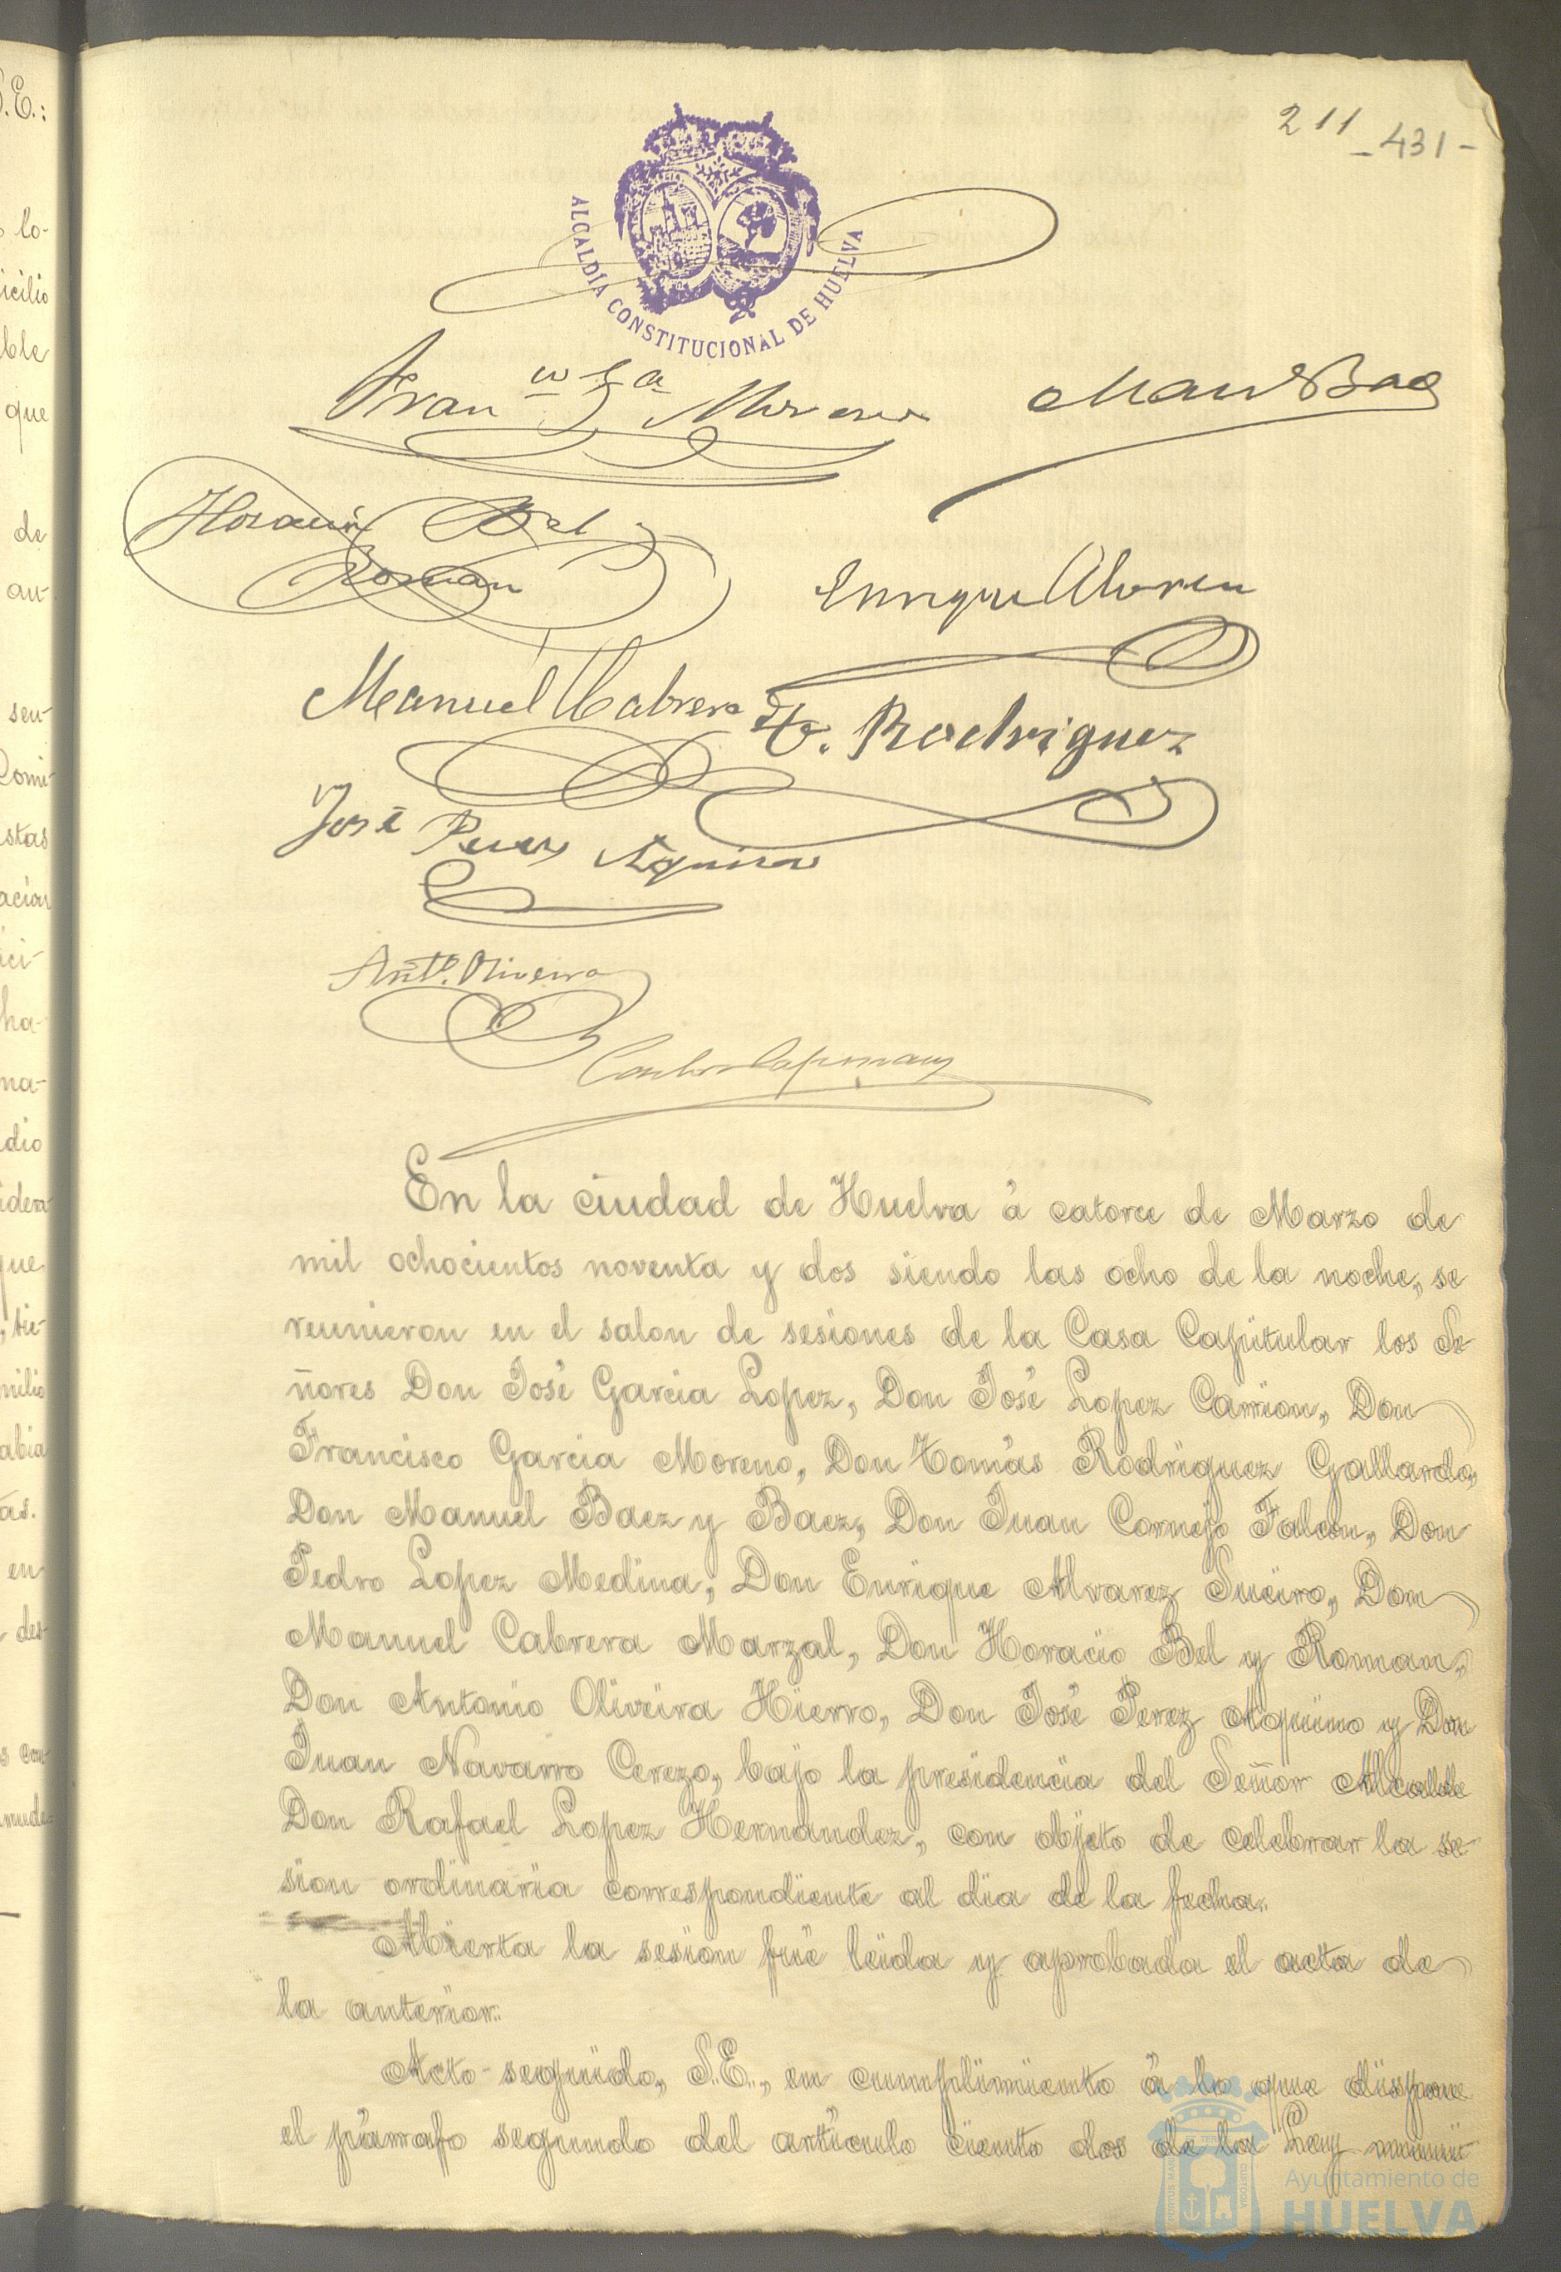 211
- 431 -
ALCALDÍA CONSTITUCIONAL DE HUELVA
Fran.co G.a Moreno
Man.l Baez
Horacio Bel y
Roman
Enrique Alvarez
Manuel Cabrera
T. Rodriguez
José Perez Aquino
Ant.o Oliveira
En la ciudad de Huelva á catorce de Marzo de
mil ochocientos noventa y dos siendo las ocho de la noche, se
reunieron en el salon de sesiones de la Casa Capitular los Se-
ñores Don José Garcia Lopez, Don José Lopez Carrion, Don
Francisco Garcia Moreno, Don Tomás Rodriguez Gallardo,
Don Manuel Baez y Baez, Don Juan Cornejo Falcon, Don
Pedro Lopez Medina, Don Enrique Alvarez Sueiro, Don
Manuel Cabrera Marzal, Don Horacio Bel y Roman,
Don Antonio Oliveira Hierro, Don José Perez Aquino y Don
Juan Navarro Cerezo, bajo la presidencia del Señor Alcalde
Don Rafael Lopez Hernandez, con objeto de celebrar la se-
sion ordinaria correspondiente al dia de la fecha.
Abierta la sesion fué leida y aprobada el acta de
la anterior.
Acto seguido, S.E., en cumplimiento á lo que dispone
el párrafo segundo del artículo ciento dos de la Ley munici-
Ayuntamiento de
HUELVA